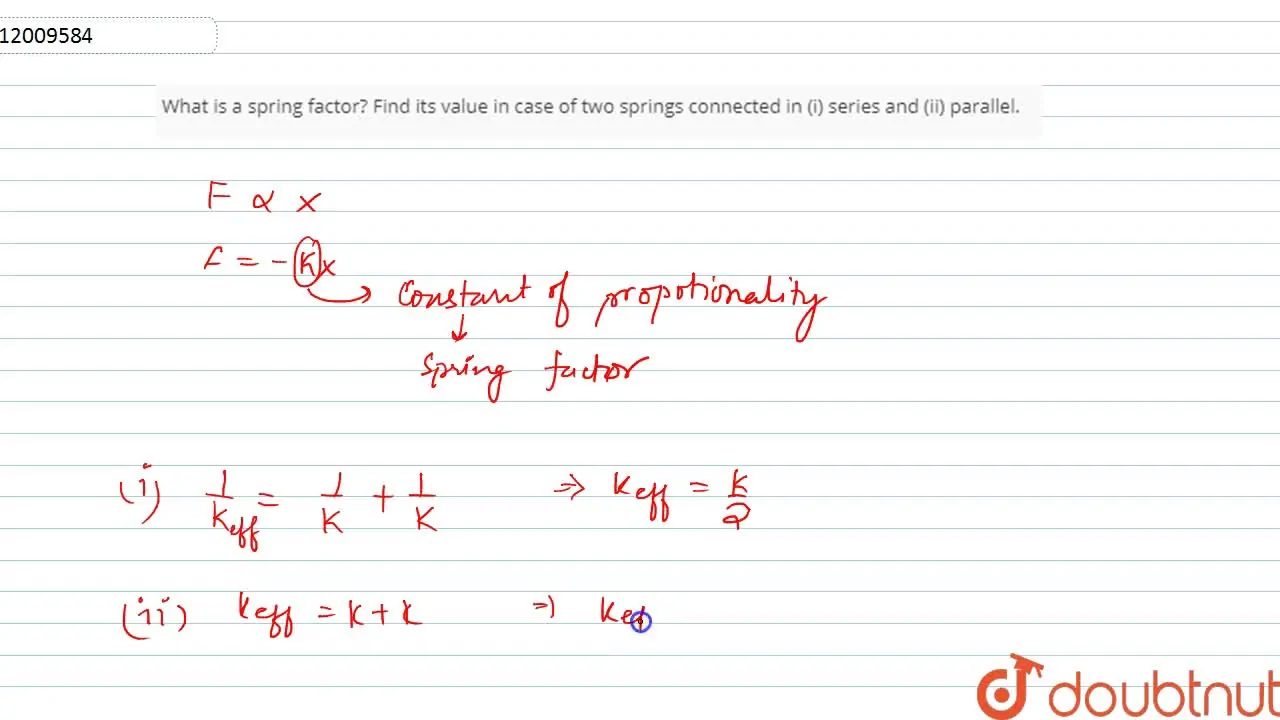 12009584
What is a spring factor? Find its value in case of two springs connected in (i) series and (ii) parallel.
F ∝ x
F = -Kx
Constant of propotionality
↓
Spring factor
(i) 1/Keff = 1/K + 1/K ⇒ Keff = K/2
(ii) Keff = K + K ⇒ Kef
doubtnut